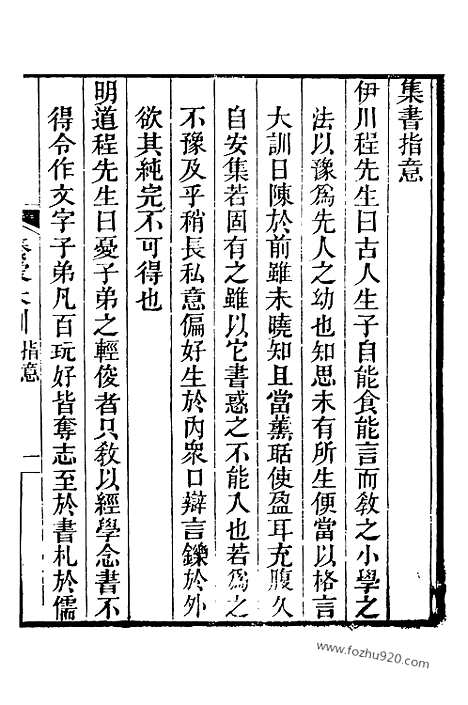 集書指意
伊川程先生曰古人生子自能食能言而敎之小學之
法以豫爲先人之幼也知思未有所主便當以格言
大訓日陳於前雖未曉知且當薰聒使盈耳充腹久
自安集若固有之雖以它書惑之不能入也若爲之
不豫及乎稍長私意偏好生於內衆口辯言鑠於外
欲其純完不可得也
明道程先生曰憂子弟之輕俊者只敎以經學念書不
得令作文字子弟凡百玩好皆奪志至於書札於儒
指意
一
www.fozhu920.com